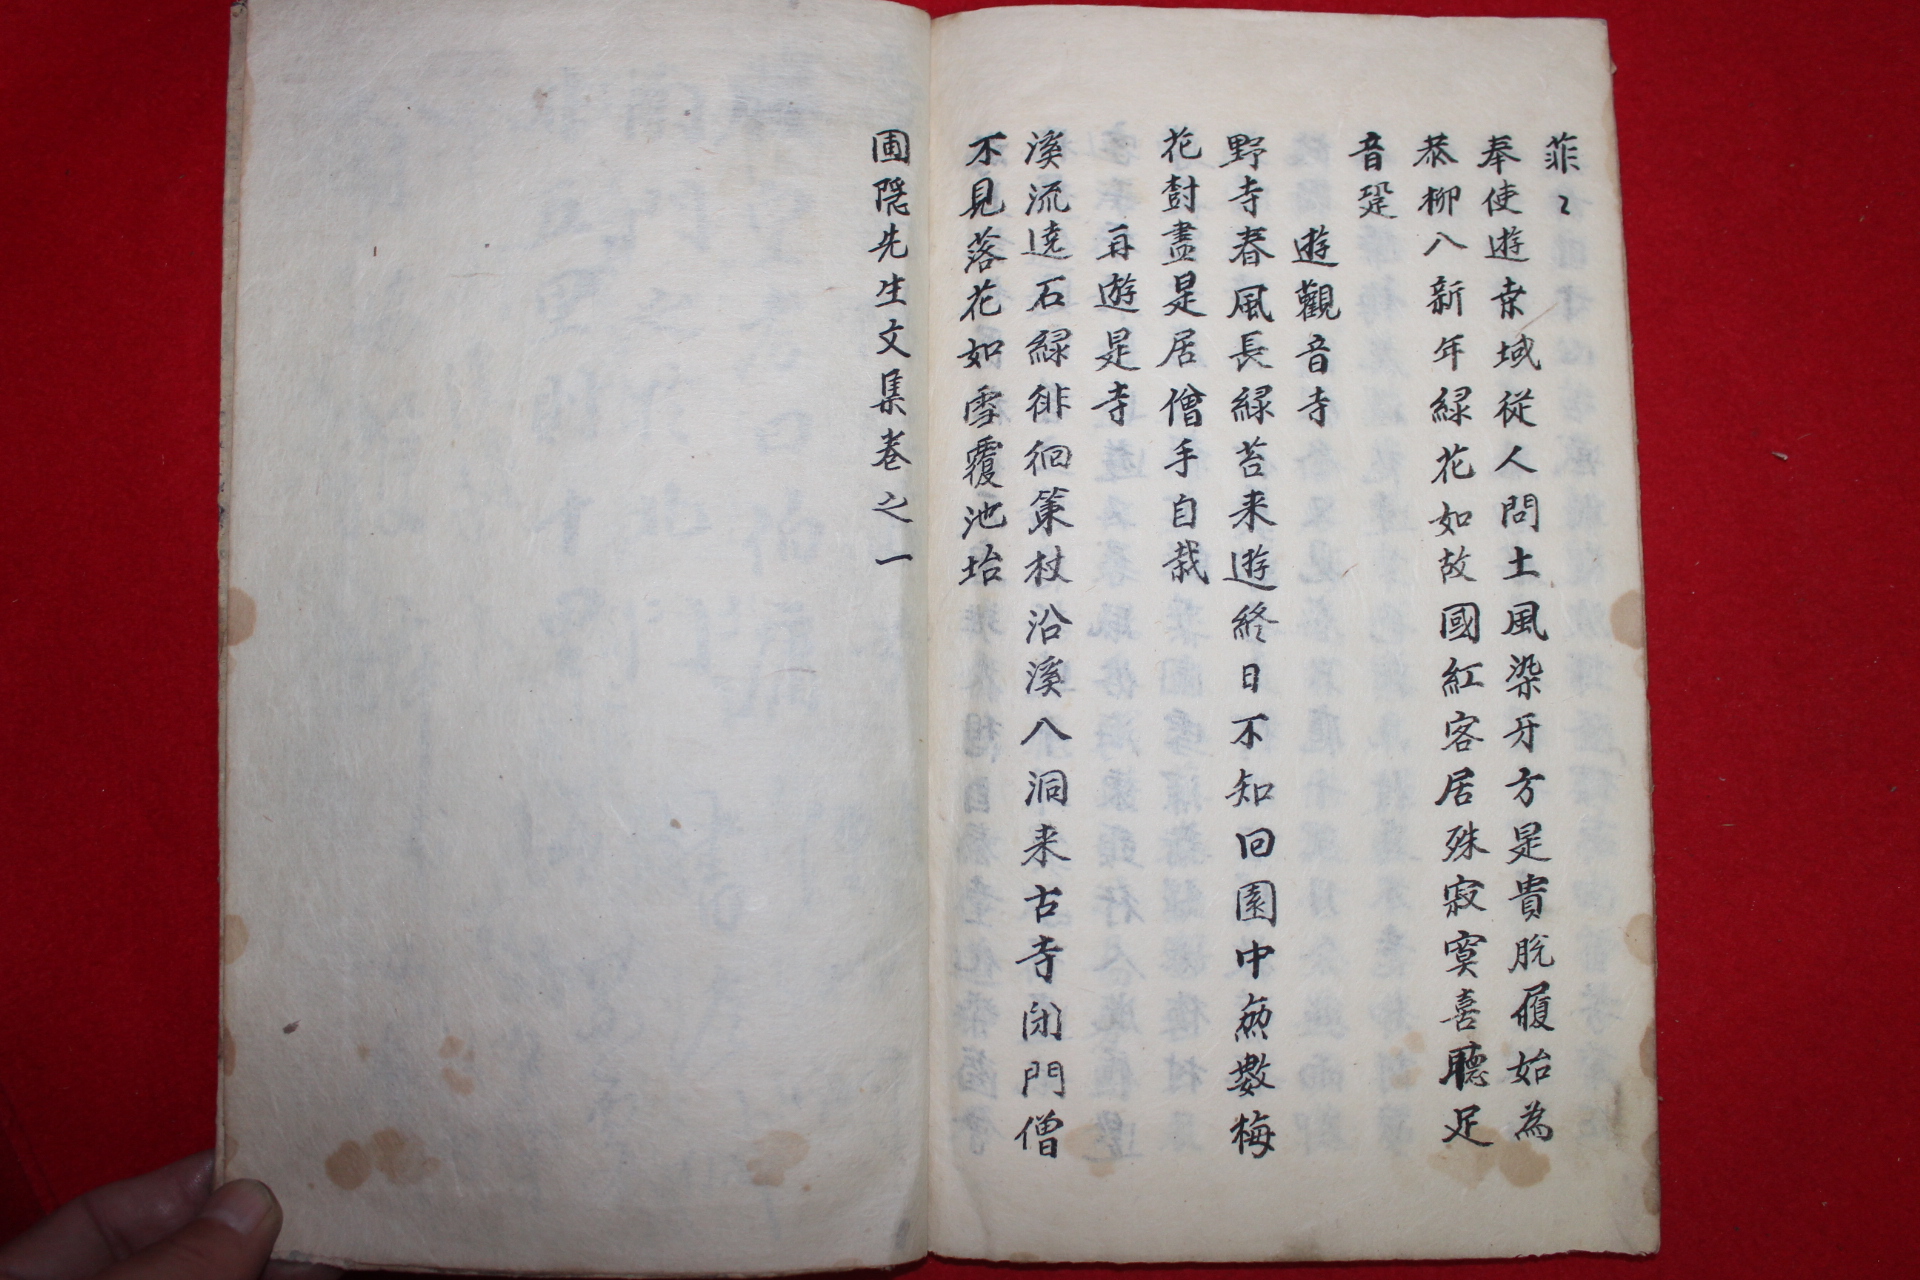 菲〻
奉使遊桒域從人問土風染牙方是貴脫履始為
恭柳八新年綠花如故國紅客居殊寂寞喜聽足
音跫
遊觀音寺
野寺春風長綠苔来遊終日不知回園中無數梅
花尌盡是居僧手自栽
再遊是寺
溪流遶石綠徘徊策杖沿溪八洞来古寺閉門僧
不見落花如雪覆池坮
圃隱先生文集卷之一